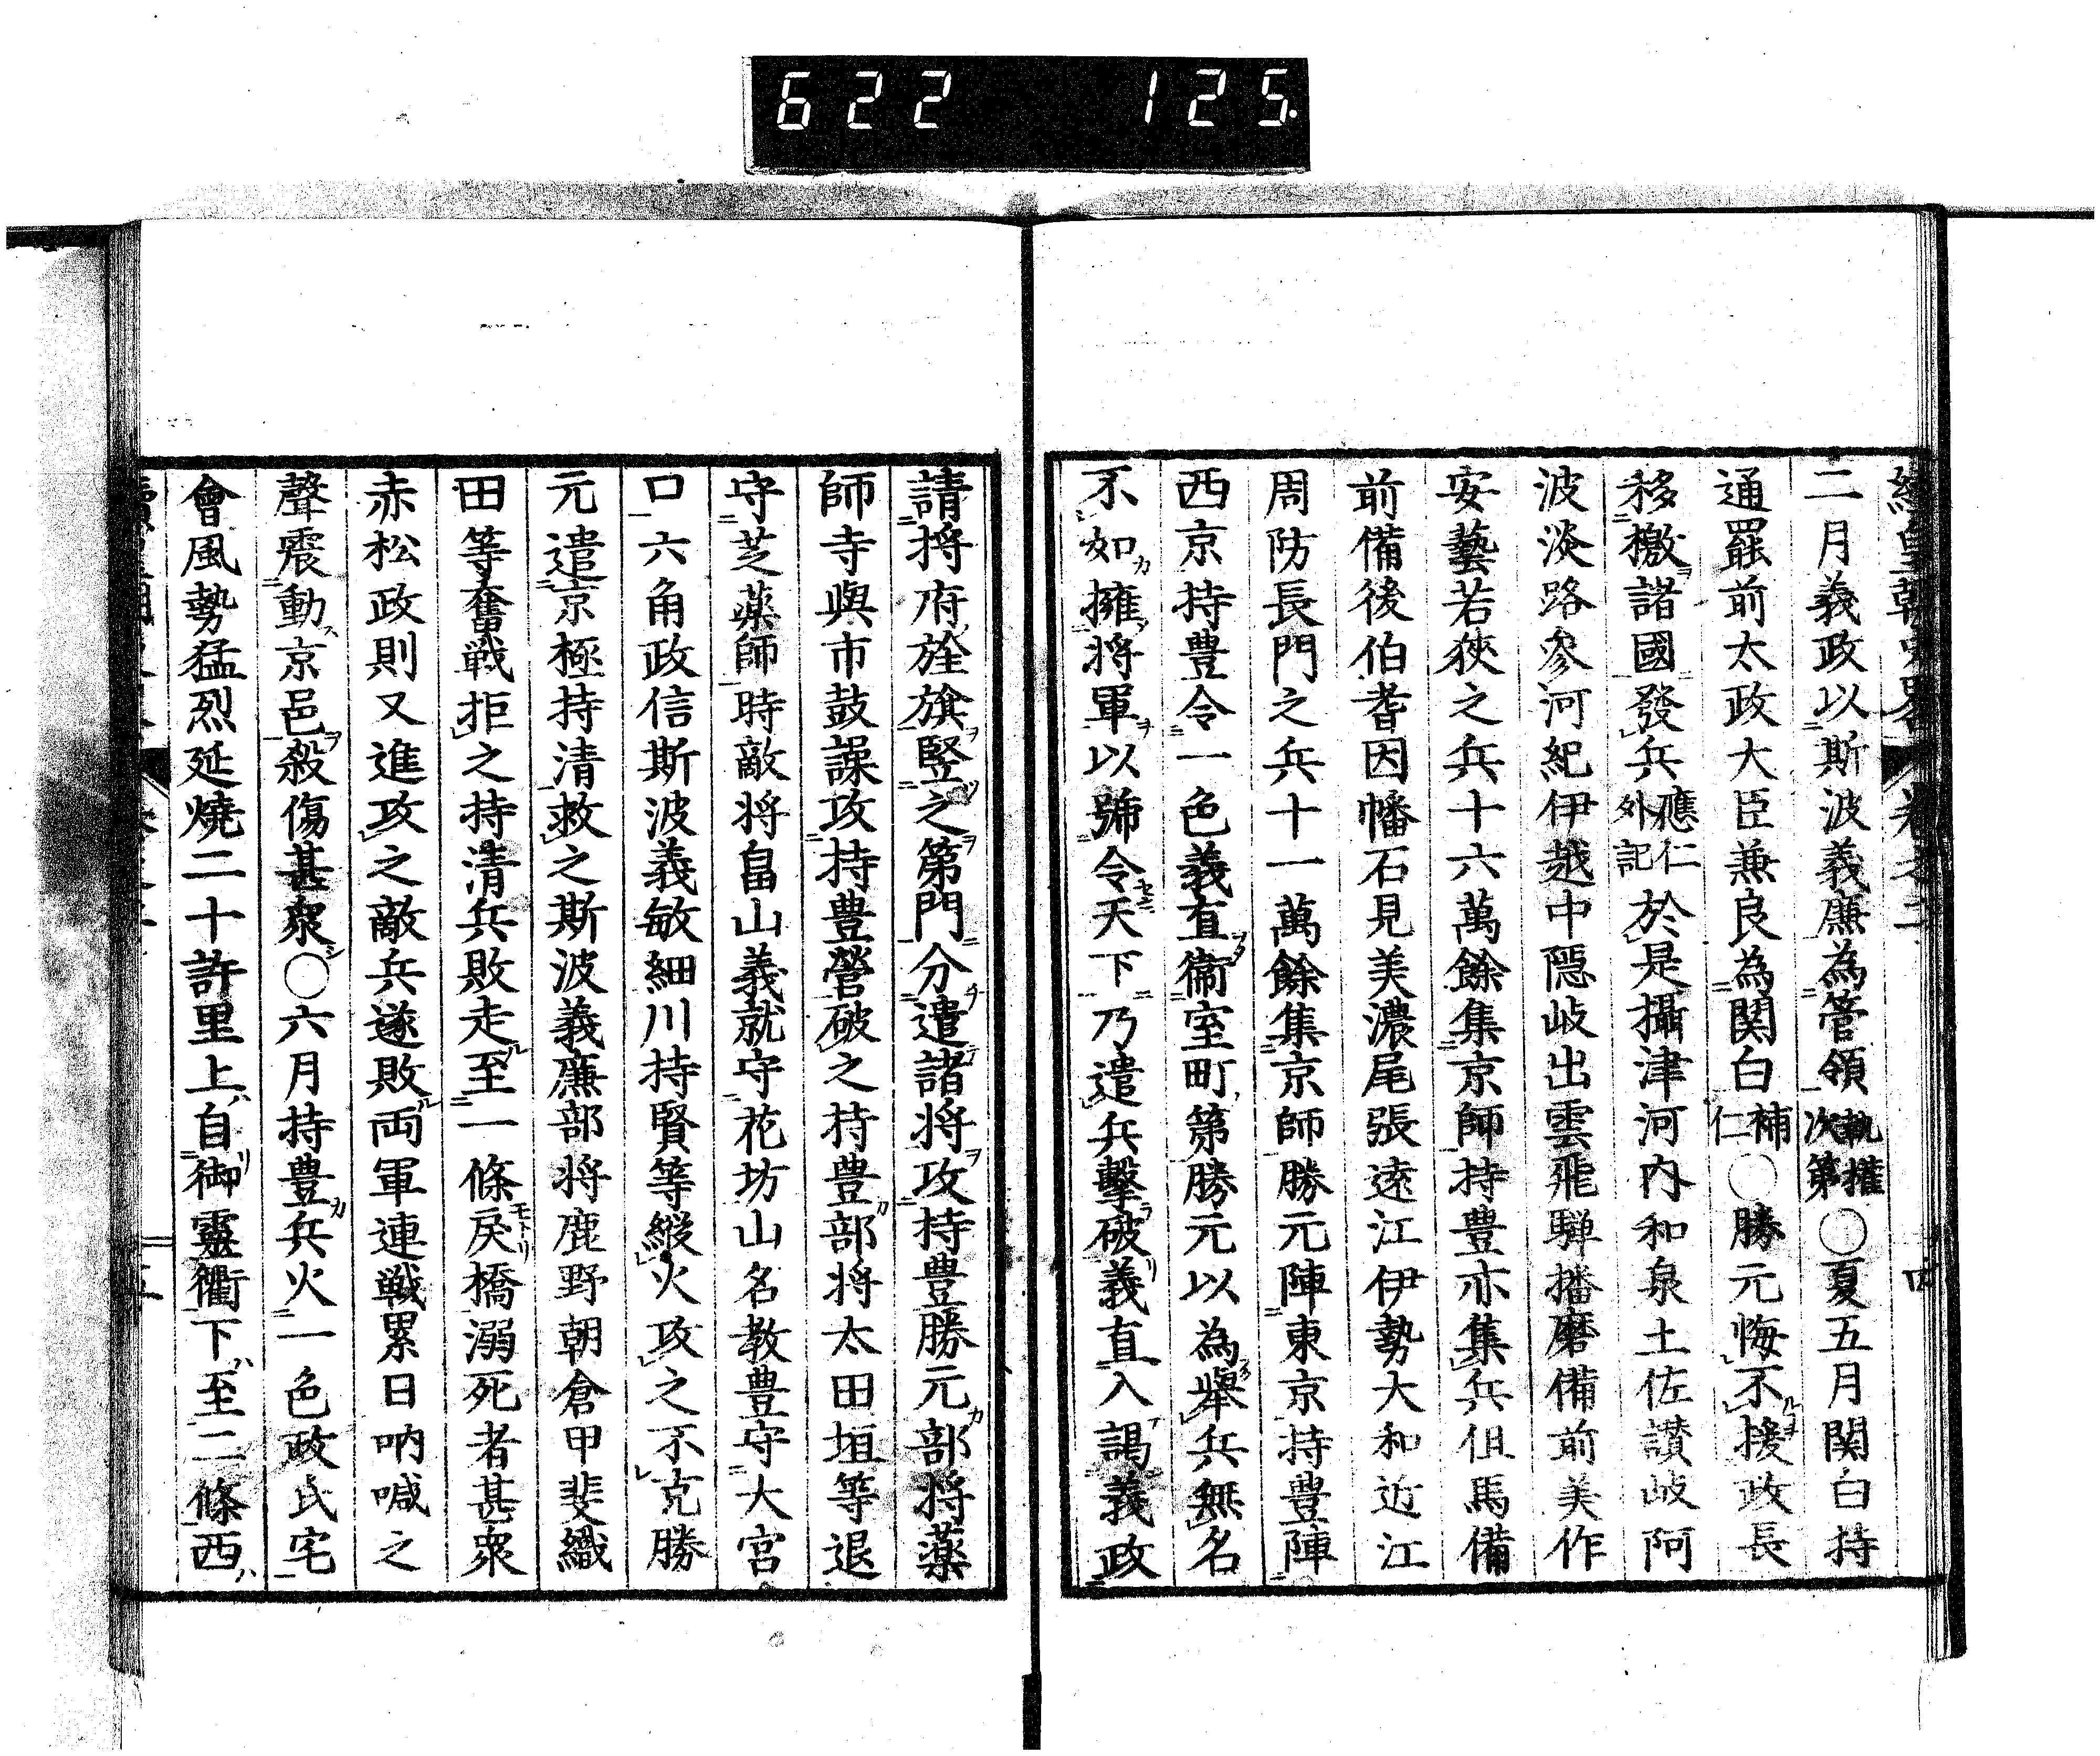 622 125.
二月義政以斯波義廉為管領執權次第○夏五月関白持
通罷前太政大臣兼良為関白補仁○勝元悔不援政長
移檄諸國發兵應仁外記於是攝津河内和泉土佐讃岐阿
波淡路參河紀伊越中隠岐出雲飛騨播磨備前美作
安藝若狹之兵十六萬餘集京師持豊亦集兵但馬備
前備後伯耆因幡石見美濃尾張遠江伊勢大和近江
周防長門之兵十一萬餘集京師勝元陣東京持豊陣
西京持豊令一色義直衞室町第勝元以為舉兵無名
不如擁将軍以號令天下乃遣兵擊破義直入謁義政
請将府旌旗竪之第門分遣諸将攻持豊勝元部将藥
師寺與市鼓譟攻持豊營破之持豊部将太田垣等退
守芝藥師時敵将畠山義就守花坊山名教豊守大宮
口六角政信斯波義敏細川持賢等縱火攻之不克勝
元遣京極持清救之斯波義廉部将鹿野朝倉甲斐織
田等奮戦拒之持清兵敗走至一條戻橋溺死者甚衆
赤松政則又進攻之敵兵遂敗両軍連戦累日吶喊之
聲震動京邑殺傷甚衆○六月持豊兵火一色政氏宅
會風勢猛烈延燒二十許里上自御靈衢下至二條西